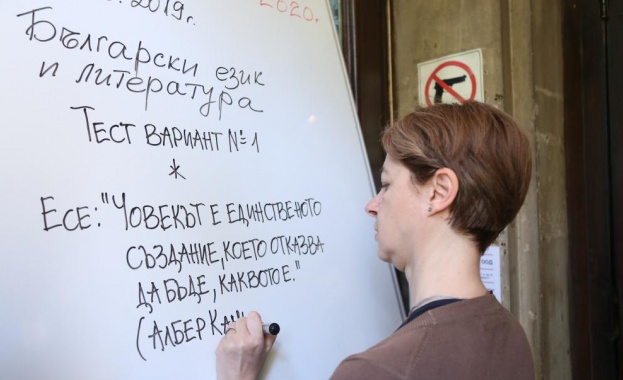 .2019г.
2020.
Български език
и литература
Тест вариант №1
*
Есе: "Човекът е единственото
създание, което отказва
да бъде, каквото е."
(Албер Ка